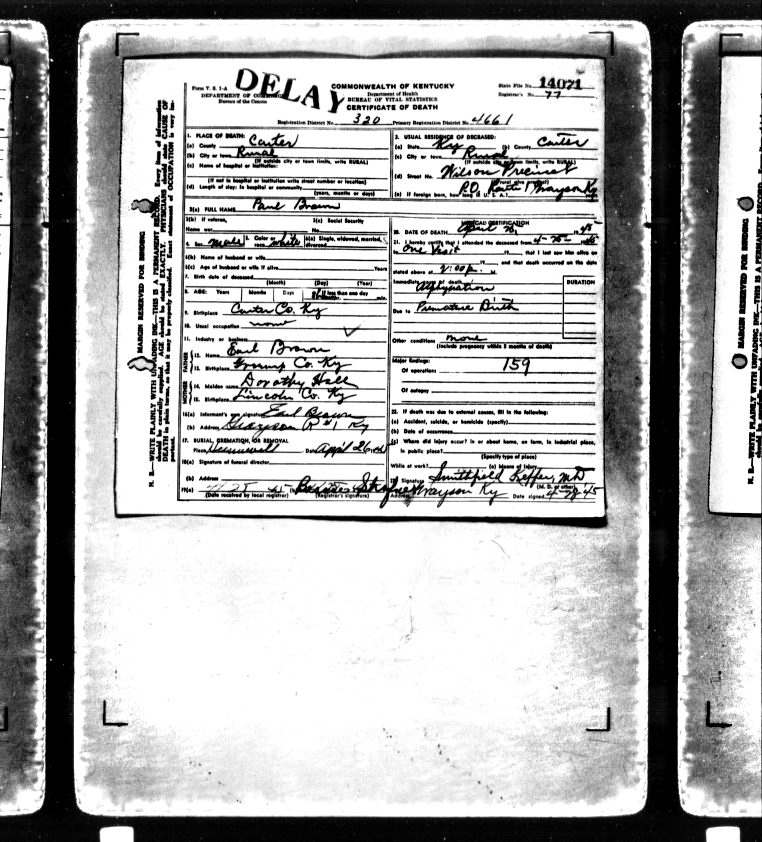 DELAY
Form V. S. 1-A
DEPARTMENT OF COMMERCE
Bureau of the Census
COMMONWEALTH OF KENTUCKY
Department of Health
BUREAU OF VITAL STATISTICS
CERTIFICATE OF DEATH
State File No. 14071
Registrar's No. 77
Registration District No. 320 Primary Registration District No. 4661
1. PLACE OF DEATH:
(a) County Carter
(b) City or town Rural
(If outside city or town limits, write RURAL)
(c) Name of hospital or institution:
(If not in hospital or institution write street number or location)
(d) Length of stay: In hospital or community
(years, months or days)
2. USUAL RESIDENCE OF DECEASED:
(a) State Ky (b) County Carter
(c) City or town Rural
(If outside city or town limits, write RURAL)
(d) Street No. Wilson Precinct
P.O. Route 1 Grayson Ky
(e) If foreign born, how long in U. S. A.?
3(a) FULL NAME Paul Brown
3(b) If veteran, Name war
3(c) Social Security No.
4. Sex Male 5. Color or race White 6(a) Single, widowed, married, divorced
6(b) Name of husband or wife
6(c) Age of husband or wife if alive Years
7. Birth date of deceased
(Month) (Day) (Year)
8. AGE: Years Months Days If less than one day
9. Birthplace Carter Co. Ky
10. Usual occupation none
11. Industry or business
FATHER
12. Name Earl Brown
13. Birthplace Co. Ky
MOTHER
14. Maiden name Dorothy Hall
15. Birthplace Lincoln Co. Ky
16(a) Informant's own signature Earl Brown
(b) Address Grayson R#1 Ky
17. BURIAL, CREMATION, OR REMOVAL
Place Date April 26
18(a) Signature of funeral director
(b) Address
19(a)
(Date received by local registrar) (Registrar's signature)
MEDICAL CERTIFICATION
20. DATE OF DEATH April 1945
21. I hereby certify that I attended the deceased from 4-25- 1945
to One Visit 19 , that I last saw him alive on
19 , and that death occurred on the date
stated above at 2:00 p. M.
Immediate cause of death DURATION
Asphyxiation
Due to Premature Birth
Other conditions none
(Include pregnancy within 3 months of death)
Major findings: 159
Of operations
Of autopsy
22. If death was due to external causes, fill in the following:
(a) Accident, suicide, or homicide (specify)
(b) Date of occurrence
(c) Where did injury occur? In or about home, on farm, in industrial place,
in public place?
(Specify type of place)
While at work? (e) Means of injury
Signature Smithfield Keffer, MD
(M. D. or other)
Address Grayson Ky Date signed 4-28-45
MARGIN RESERVED FOR BINDING
N. B.—WRITE PLAINLY WITH UNFADING INK—THIS IS A PERMANENT RECORD. Every item of information
should be carefully supplied. AGE should be stated EXACTLY. PHYSICIANS should state CAUSE OF
DEATH in plain terms, so that it may be properly classified. Exact statement of OCCUPATION is very im-
portant.
MARGIN RESERVED FOR BINDING